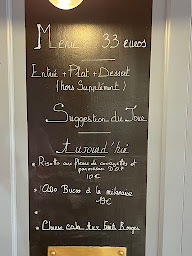 Menu 33 euros
Entrée + Plat + Dessert
(hors Supplément)
Suggestion du Jour
Aujourd'hui
Risotto aux fleurs de courgettes et
parmesan D.O.P
10€
Osso Bucco à la milanaise
19€
Cheese cake aux Fruits Rouges